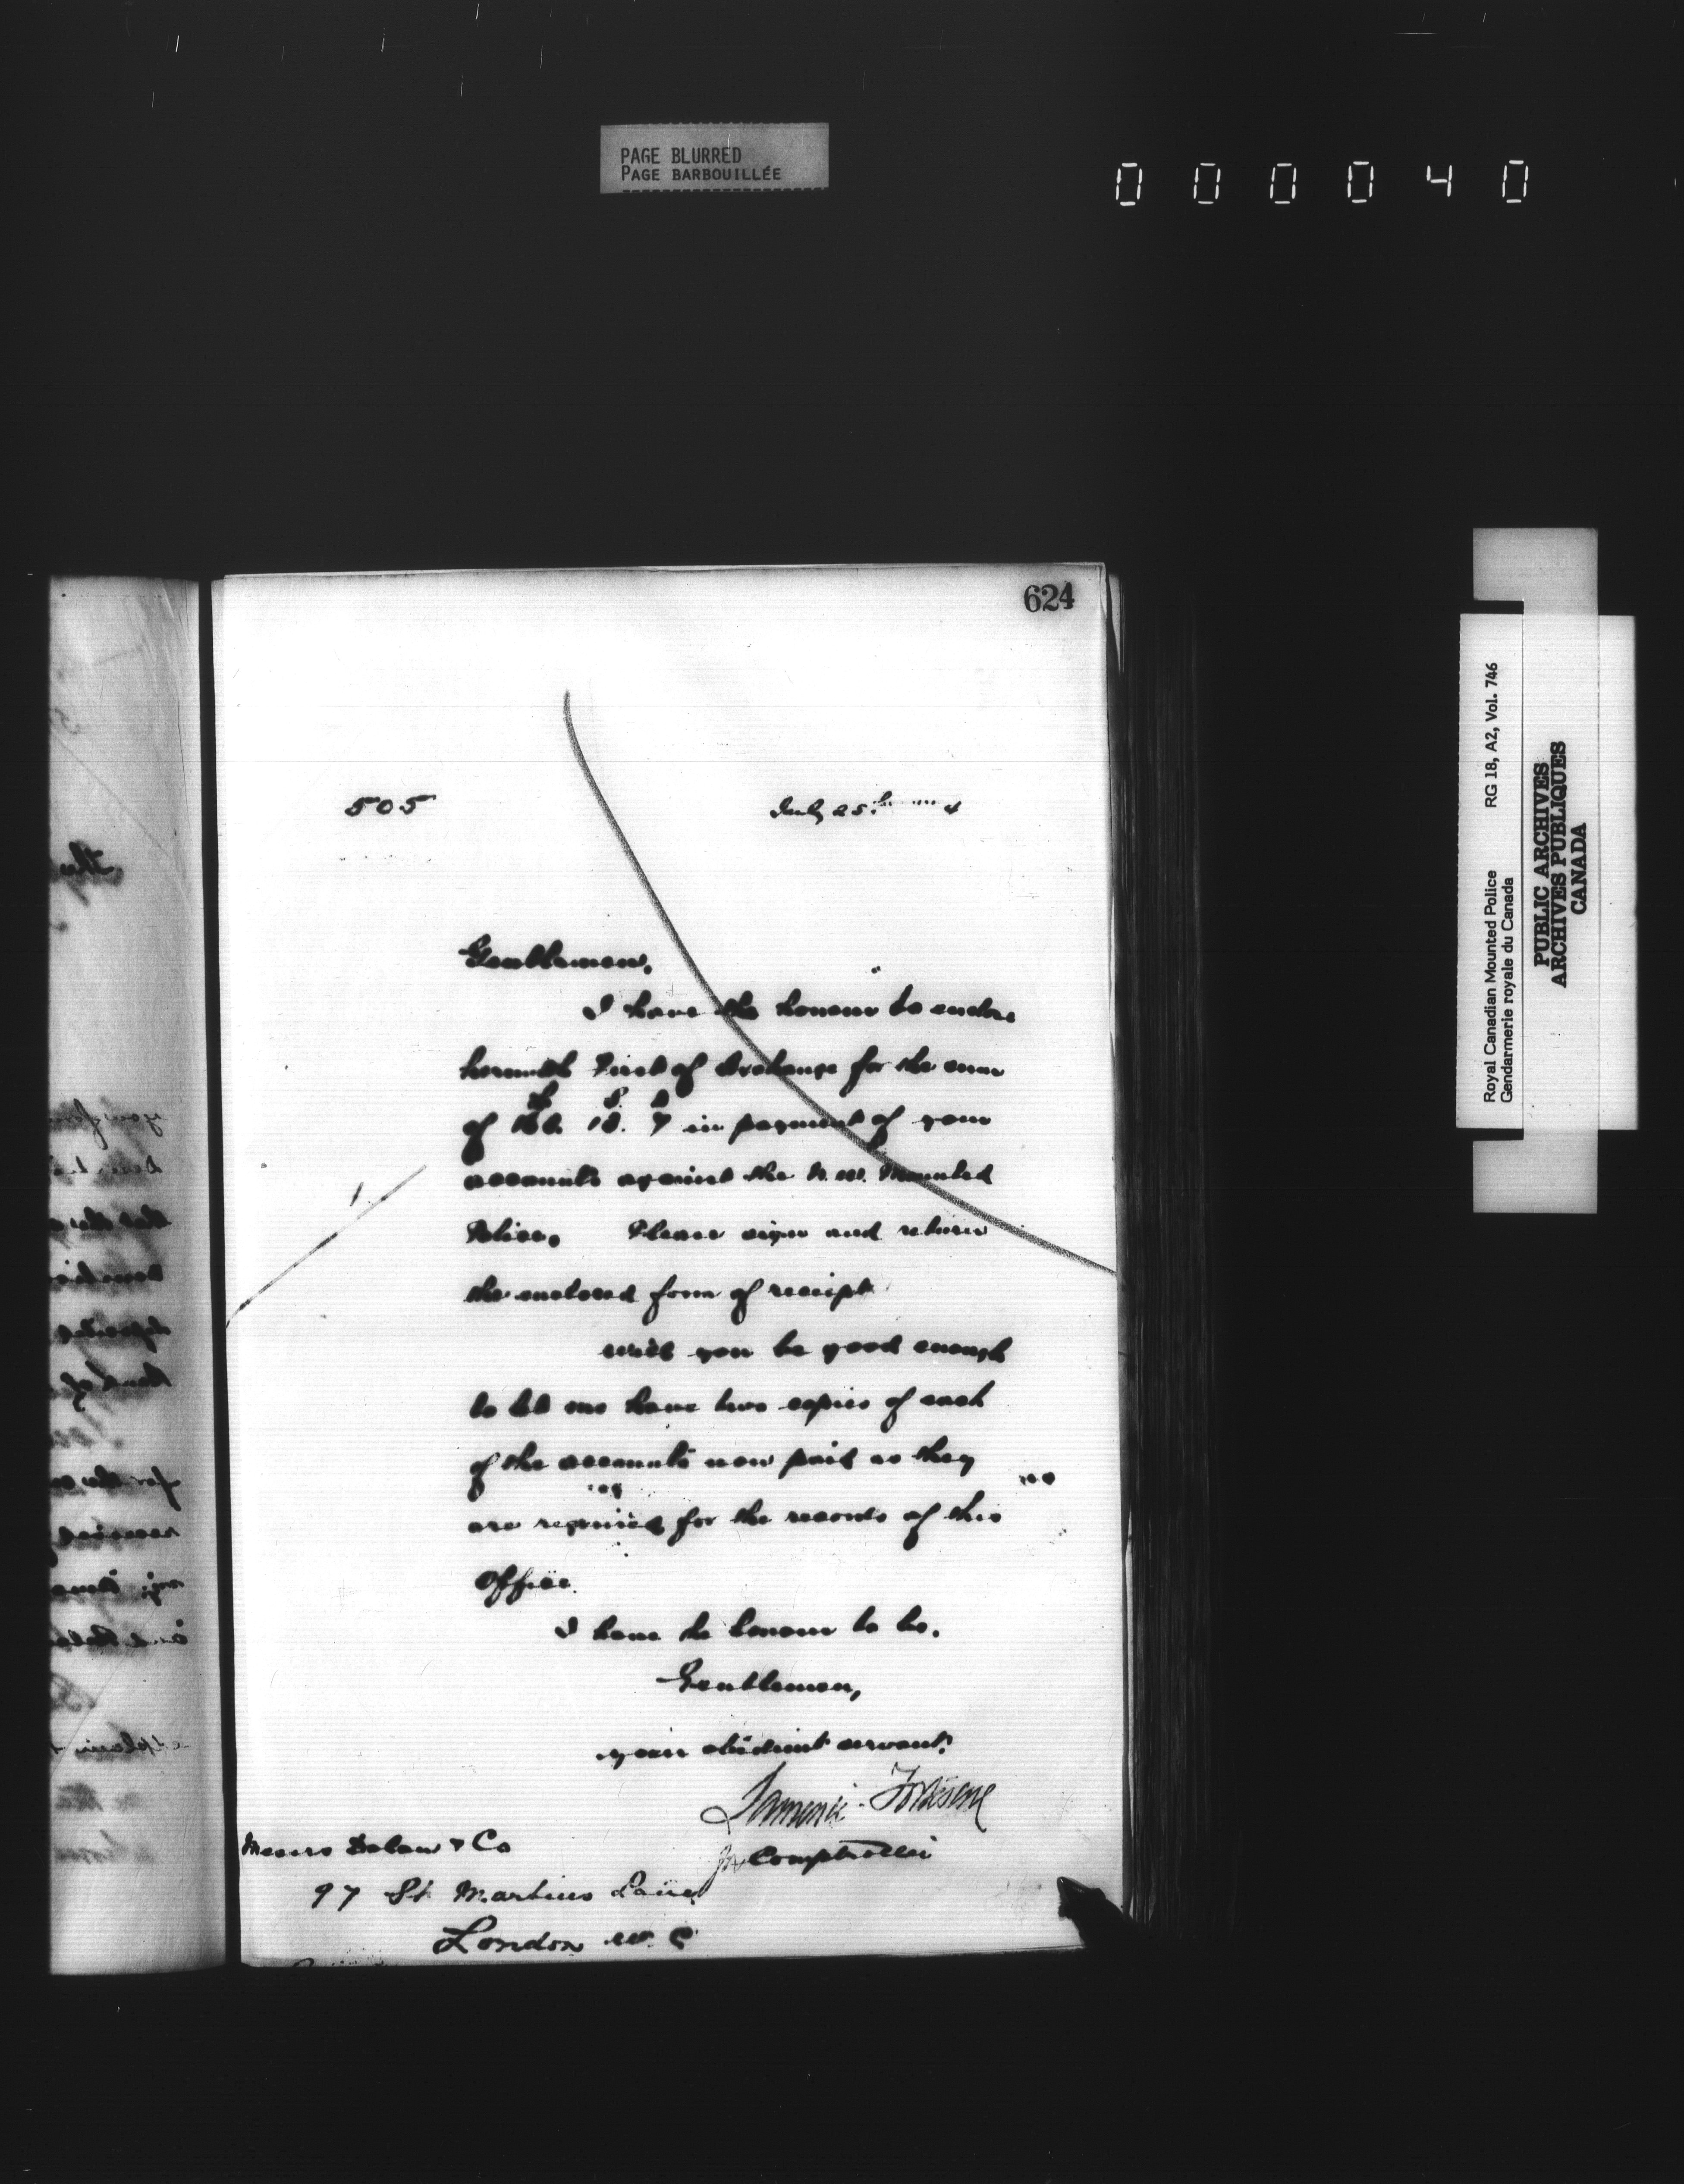 PAGE BLURRED
PAGE BARBOUILLÉE
000040
624
505
July 25th 4
Gentlemen,
I have the honour to enclose
herewith First of Exchange for the sum
£ S. D
of 18. 7 in payment of your
accounts against the N. W. Mounted
Police. Please sign and return
the enclosed form of receipt
will you be good enough
to let me have two copies of each
of the accounts now paid as they
are required for the records of this
Office.
I have the honour to be,
Gentlemen,
your obedient servant,
Fortescue
for Comptroller
Messrs & Co
97 St Martins Lane
London W. C
Royal Canadian Mounted Police RG 18, A2, Vol. 746
Gendarmerie royale du Canada
PUBLIC ARCHIVES
ARCHIVES PUBLIQUES
CANADA